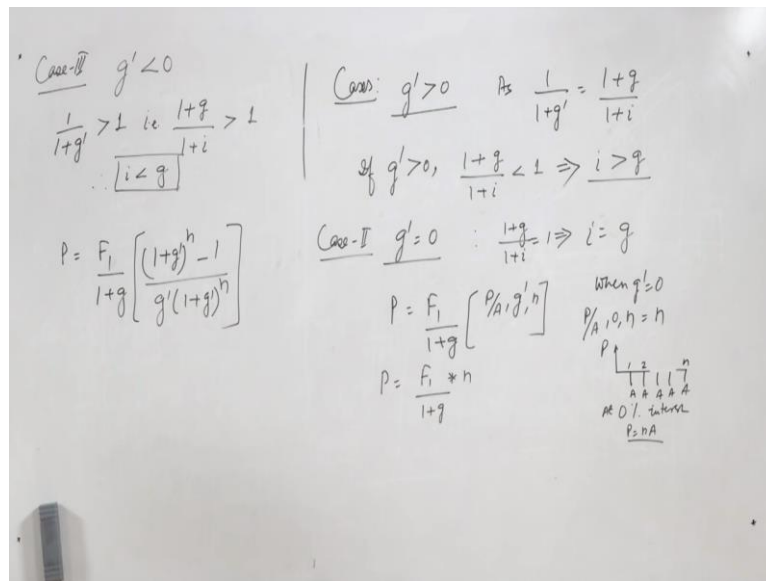 Case-III g' < 0
1/(1+g') > 1 ie (1+g)/(1+i) > 1
∴ i < g
P = F₁/(1+g) [ ((1+g')ⁿ - 1) / (g'(1+g')ⁿ) ]
Cases: g' > 0 As 1/(1+g') = (1+g)/(1+i)
If g' > 0, (1+g)/(1+i) < 1 ⇒ i > g
Case-II g' = 0 : (1+g)/(1+i) = 1 ⇒ i = g
P = F₁/(1+g) [ P/A, g', n ]
P = F₁/(1+g) * n
When g' = 0
P/A, 0, n = n
P
1 2 n
A A A A A
At 0% interest
P = nA